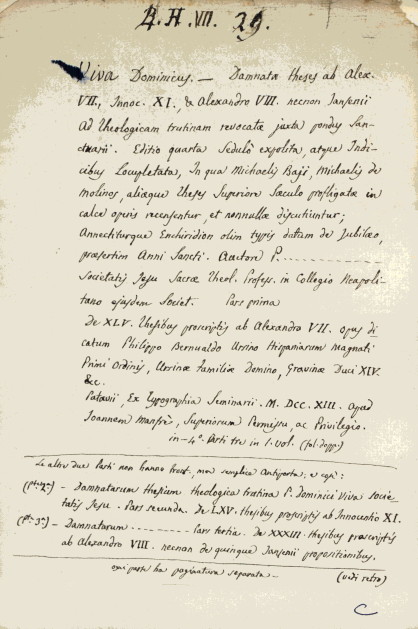 4. H. VII. 29.
Viva Dominicus. — Damnatæ theses ab Alex.
VII., Innoc. XI., & Alexandro VIII. necnon Jansenii
Ad Theologicam trutinam revocatæ juxta pondus San-
ctuarii. Editio quarta sedulò expolita, atque Indi-
cibus locupletata, In qua Michaelis Baji, Michaelis de
Molinos, aliæque Theses Superiore Sæculo profligatæ in
calce operis recensentur, et nonnullæ discutiuntur;
Annectiturque Enchiridion olim typis datum de Jubilæo,
præsertim Anni Sancti. Auctore P. ............
Societatis Jesu Sacræ Theol. Profess. in Collegio Neapoli-
tano ejusdem Societ. Pars prima
De XLV. Thesibus proscriptis ab Alexandro VII. opus di-
catum Philippo Bernualdo Ursino Hispaniarum Magnati
Primi Ordinis, Ursinæ Familiæ Domino, Gravinæ Duci XIV.
&c.
Patavii, Ex Typographia Seminarii. M. DCC. XIII. Apud
Joannem Manfrè, Superiorum Permissu, ac Privilegio.
in-4°. Parti tre in 1. vol. (fol. dopp.)
Le altre due Parti non hanno front., ma semplice Antiporta; e così:
(pte 2a) - Damnatarum thesium theologica trutina P. Dominici Viva Socie-
tatis Jesu. Pars secunda. De LXV. thesibus proscriptis ab Innocentio XI.
(pt. 3a) - Damnatarum ............ Pars tertia. De XXXIII. thesibus proscriptis
ab Alexandro VIII. necnon de quinque Jansenii propositionibus.
ogni parte ha paginatura separata — (vedi retro)
C